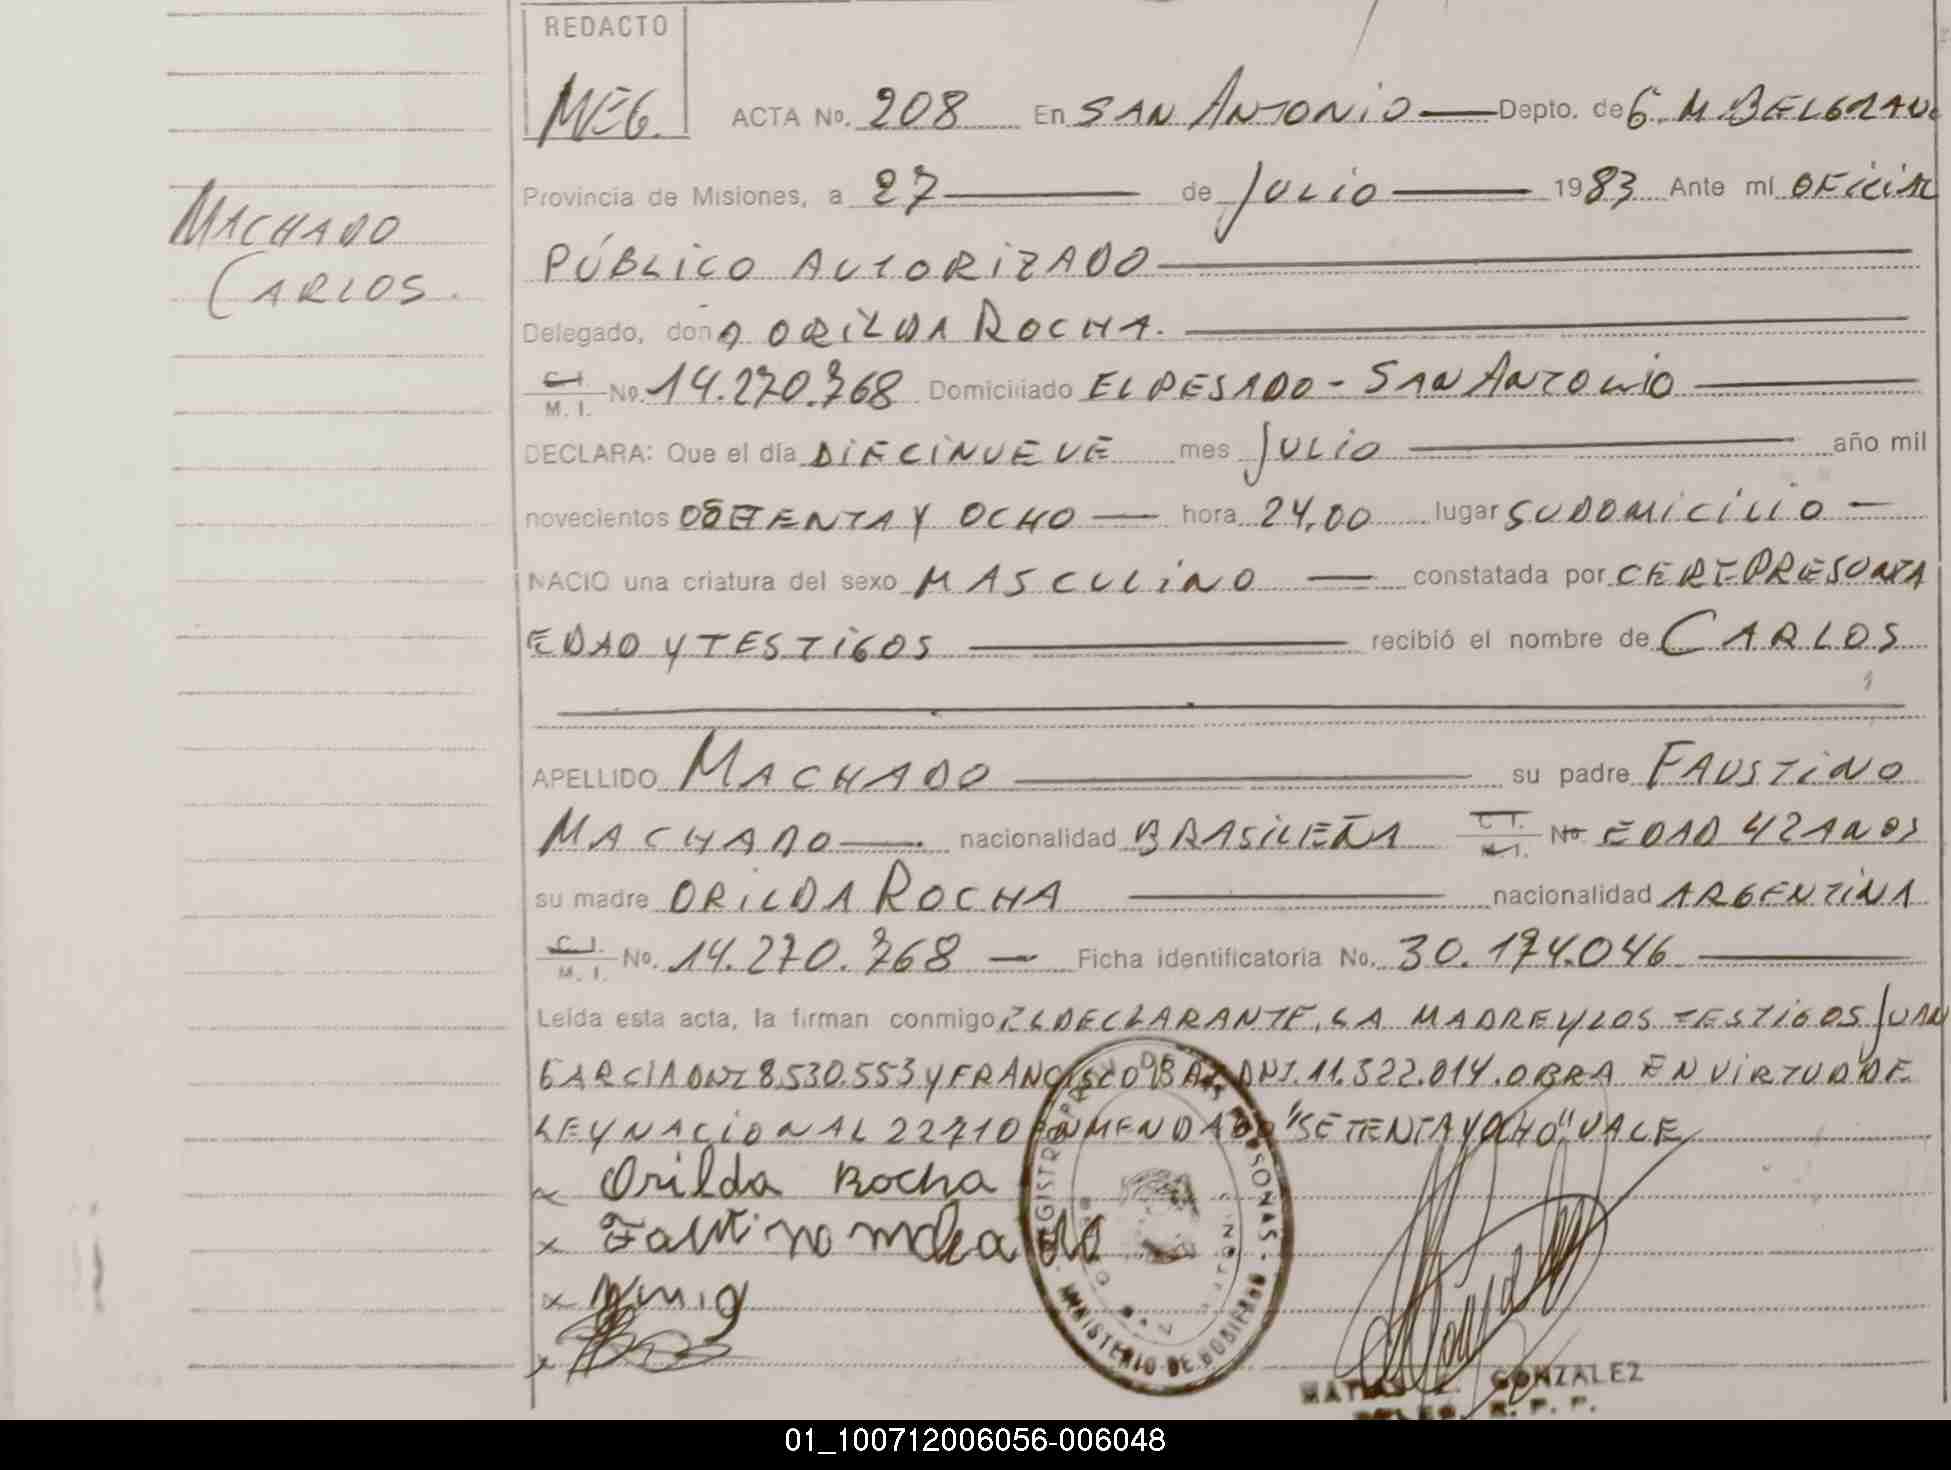 REDACTO
MEG.
ACTA No. 208 En SAN ANTONIO Depto. de G. M. BELGRANO
MACHADO
CARLOS.
Provincia de Misiones, a 27 de JULIO 1983 Ante mí OFICIAL
PÚBLICO AUTORIZADO
Delegado, donA ORILDA ROCHA.
C. I. M. I. No. 14.270.768 Domiciliado EL PESADO - SAN ANTONIO
DECLARA: Que el día DIECINUEVE mes JULIO año mil
novecientos SETENTA Y OCHO hora 24,00 lugar SU DOMICILIO
NACIO una criatura del sexo MASCULINO constatada por CERT. PRESUNTA
EDAD Y TESTIGOS recibió el nombre de CARLOS
APELLIDO MACHADO su padre FAUSTINO
MACHADO nacionalidad BRASILEÑA C. I. M. I. No EDAD 42 AÑOS
su madre ORILDA ROCHA nacionalidad ARGENTINA
C. I. M. I. No. 14.270.768 Ficha identificatoria No. 30.174.046
Leída esta acta, la firman conmigo EL DECLARANTE, LA MADRE Y LOS TESTIGOS JUAN
GARCIA DNI 8.530.553 Y FRANCISCO DNI. 11.322.014. OBRA EN VIRTUD DE
LEY NACIONAL 22710 ENMENDADO "SETENTA Y OCHO" VALE
x Orilda Rocha
x Faustino machado
x
x
REGISTRO PROV. DE LAS PERSONAS - MINISTERIO DE GOBIERNO -
MATIAS GONZALEZ
DELEG. R. P. P.
01_100712006056-006048